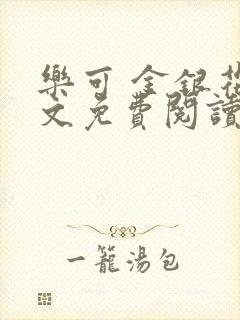 樂可 金銀花
文免費閱讀
一籠湯包